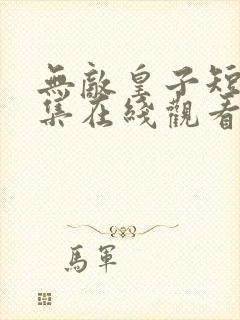 無敵皇子短
集在綫觀看
馬軍